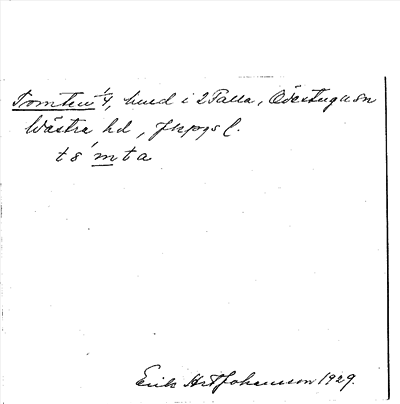 Tomten 1/4, hmd i 2 Talla, Ödestugu sn
Wästra hd, Jkpgs l.
t s ́m t a
Erik Abr Johansson 1929.